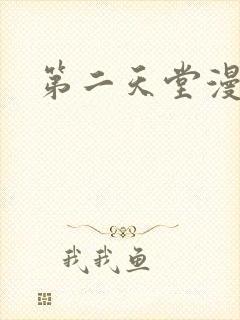 第二天堂漫
我我鱼